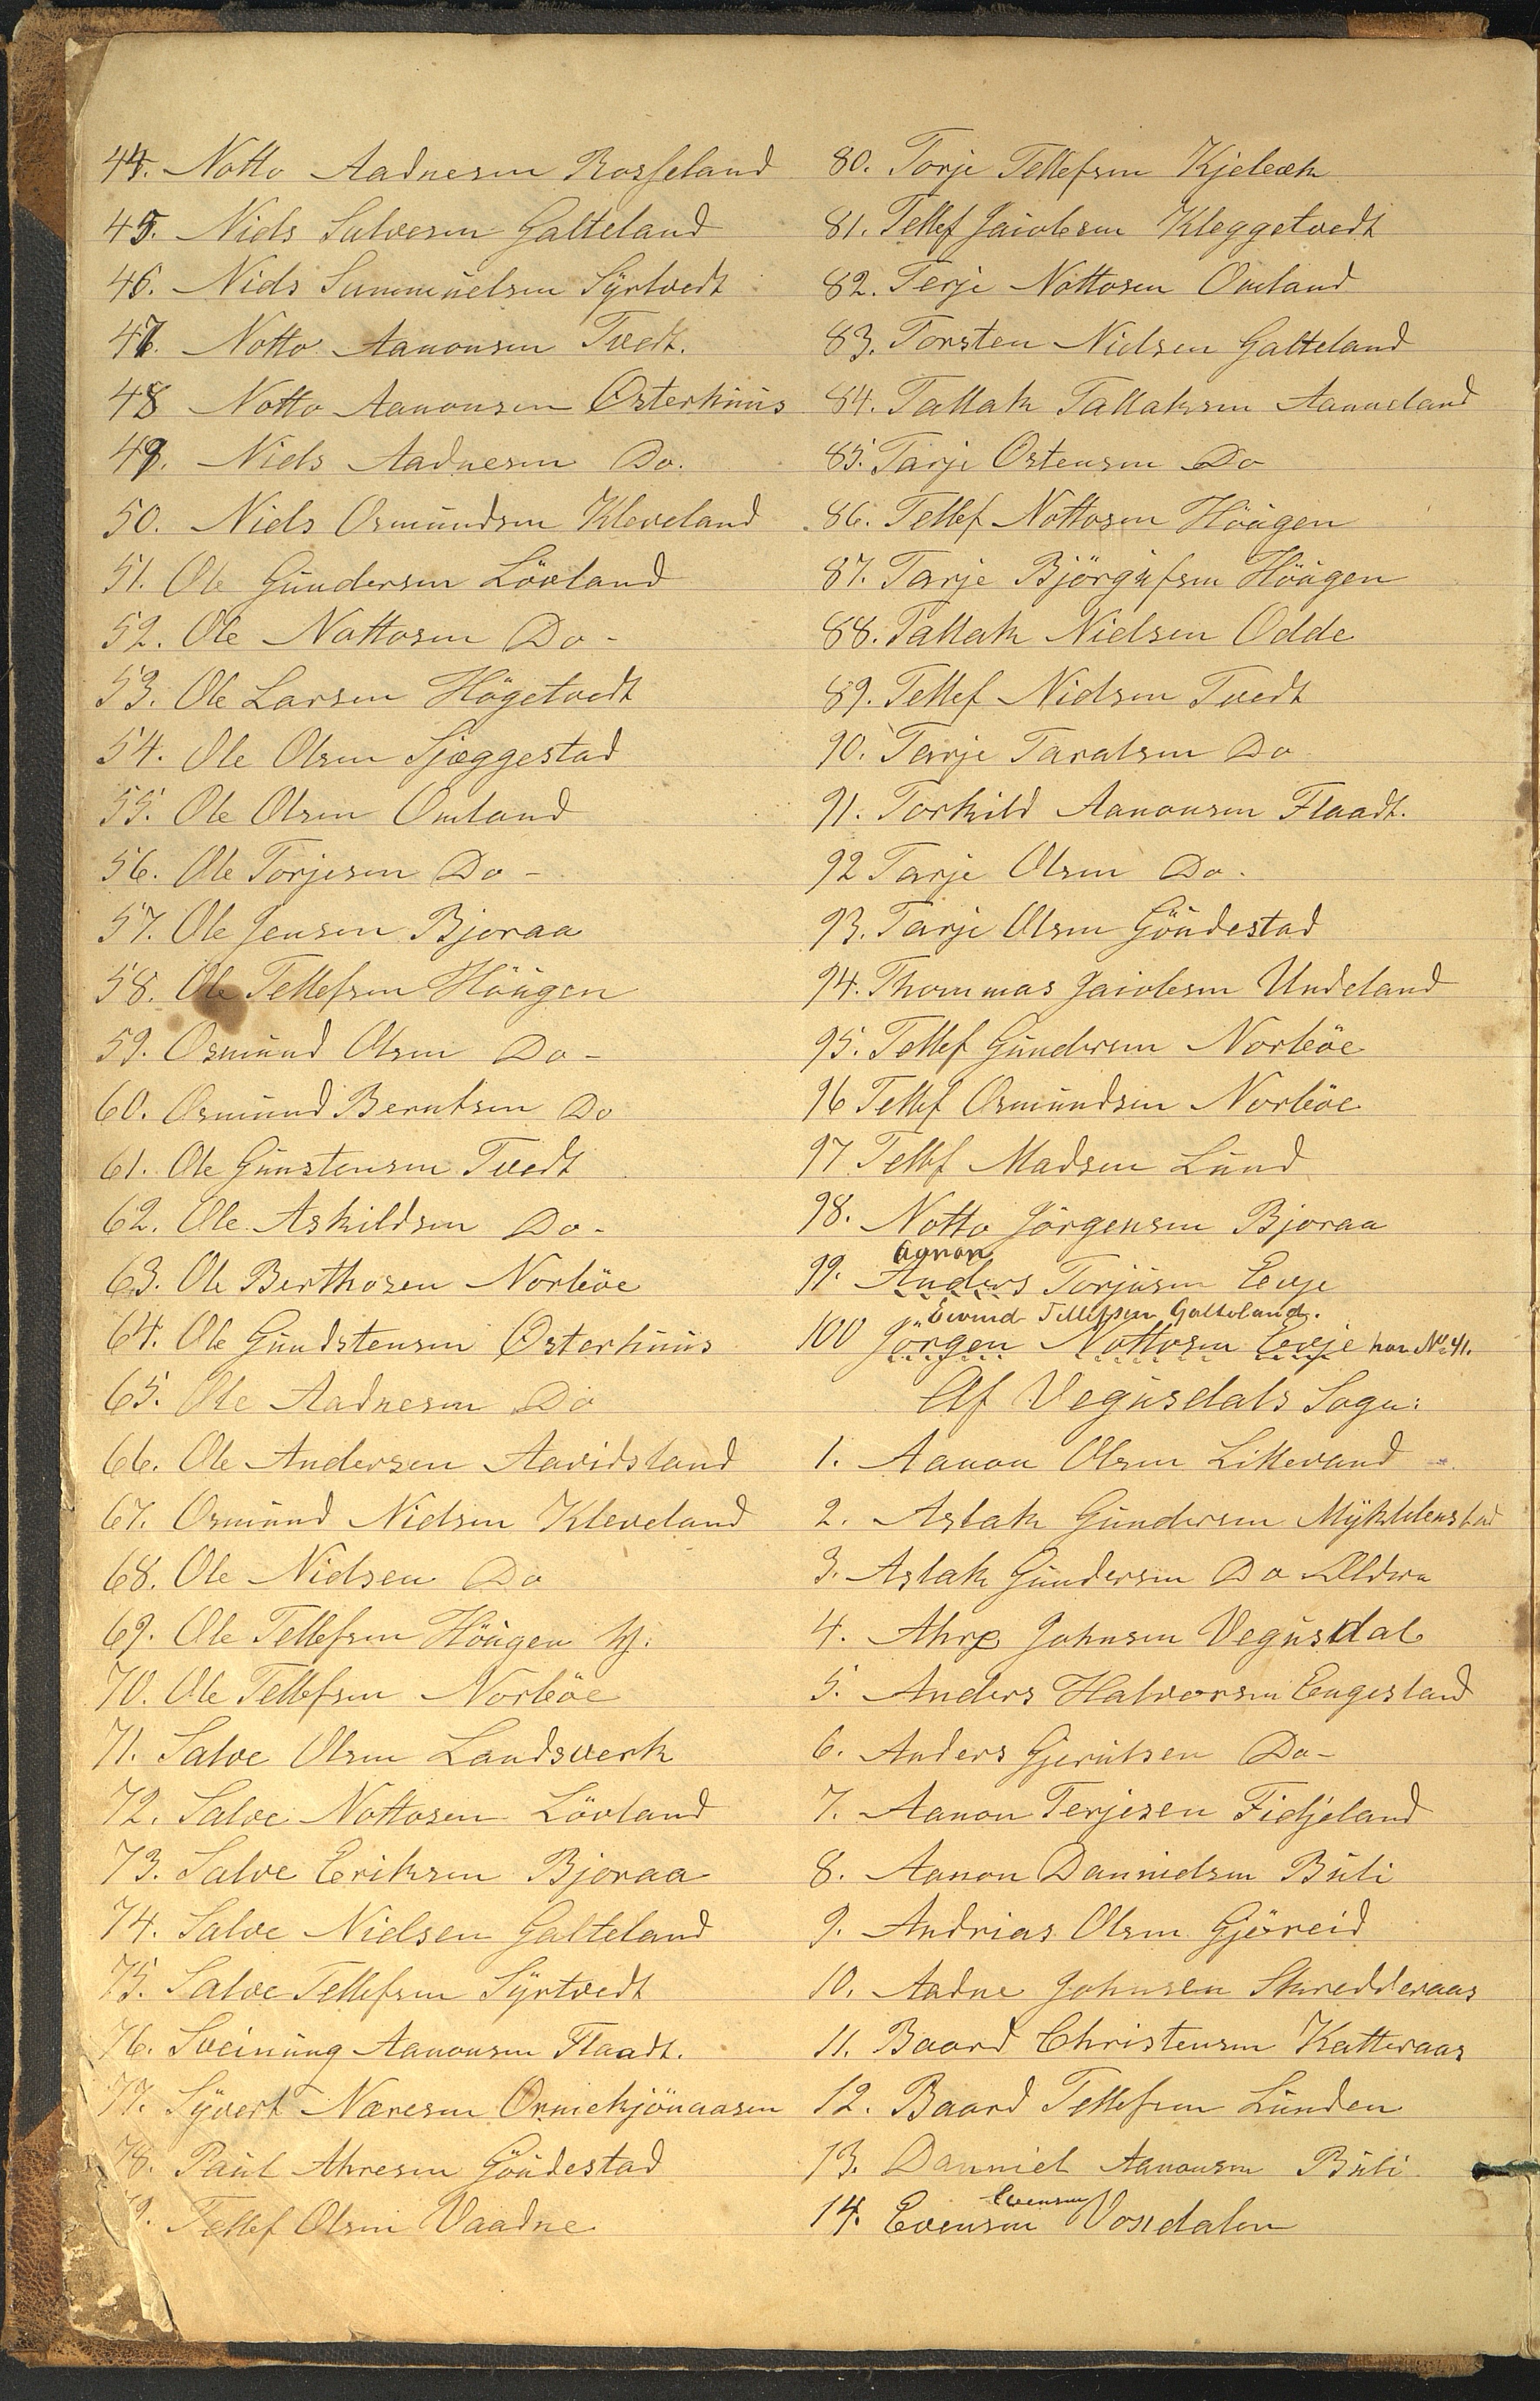 44. Notto Aadnesen Rosseland
45. Niels Salvesen Galteland
46. Niels Sammuelsen Syrtvedt
47. Notto Aanonsen Tvedt.
48 Notto Aanonsen Osterhuus
49. Niels Aadnesen Do.
50. Niels Osmundsen Kleveland
51. Ole Gundersen Lövland
52. Ole Nottosen Do -
53. Ole Larsen Högetvedt
54. Ole Olsen Sjæggestad
55. Ole Olsen Omland
56. Ole Torjesen Do -
57. Ole Jensen Bjoraa
58. Ole Tellefsen Höugen
59. Osmund Olsen Do -
60. Osmund Berntsen Do
61. Ole Gunstensen Tvedt
62. Ole Askildsen Do -
63. Ole Berthosen Norleöe
64. Ole Gundstensen Osterhuus
65. Ole Aadnesen Do
66. Ole Andersen Aavidsland
67. Osmund Nielsen Kleveland
68. Ole Nielsen Do
69. Ole Tellefsen Höugen
70. Ole Tellefsen Norleöe
71. Salve Olsen Landsverk
72. Salve Nottosen Lövland
73. Salve Eriksen Bjoraa
74. Salve Nielsen Galteland
75. Salve Tellefsen Syrtvedt
76. Sveinung Aanonsen Flaadt.
77. Syvert Næresen
78. Paul Ahresen Göudestad
9. Tellef Olsen Vaadne
80. Torje Tellefsen Kjeleæk
81. Tellef Jaiobsen Kleggetvedt
82. Terje Nottosen Omland
83. Torsten Nielsen Galteland
84. Tallak Tallaksen Aanneland
85. Tarje Ostensen Do
86. Tellef Nottosen Höugen
87. Tarje Björgufsen Höugen
88. Tallak Nielsen Odde
89. Tellef Nielsen Tvedt
90. Tarje Taralsen Do
91. Torkild Aanonsen Flaadt.
92 Tarje Olsen Do.
93. Tarje Olsen Göudestad
94. Thommas Jaiobsen Undeland
95. Tellef Gundersen Norleöe
96 Tellef Osmundsen Norleöe
97 Tellef Madsen Lund
98. Notto Jörgensen Bjoraa
Aanon
99. Anders Torjusen Eevje
Eivind Tellefsen Galteland.
100 Jörgen Nottosen Eevje har No 41.
Af Vegusdals Sogn:
1. Aanon Olsen Littevand
2. Aslak Gundersen Mykklenstad
3. Aslak Gundersen Do Ældre
4. Ahre Johnsen Vegusdal
5. Anders Halvorsen Engesland
6. Anders Gjerulsen Do -
7. Aanon Terjesen Fidjeland
8. Aanon Dannielsen Buli
9. Andrias Olsen Gjöreid
10. Aadne Johnsen Skredderaas
11. Baard Christensen Katteraas
12. Baard Tellefsen Lunden
13. Danniel Aanonsen Buli
Evensen
14. Evensen Vosdalen